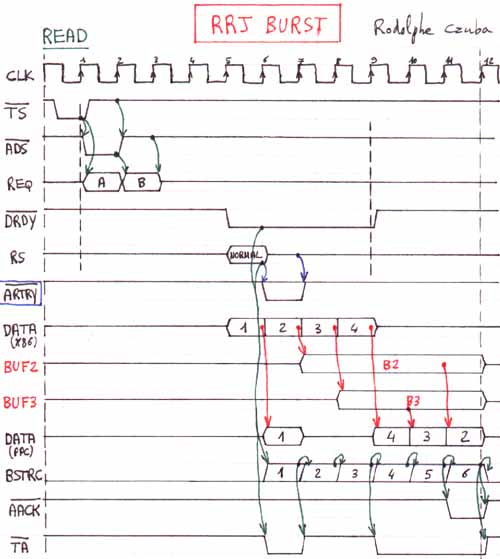 RRJ BURST
Rodolphe Czuba
READ
CLK 1 2 3 4 5 6 7 8 9 10 11 12
TS
ADS
REQ A B
DRDY
RS NORMAL
ARTRY
DATA 1 2 3 4
(X86)
BUF2 B2
BUF3 B3
DATA 1 4 3 2
(PPC)
BSTRC 1 2 3 4 5 6
AACK
TA